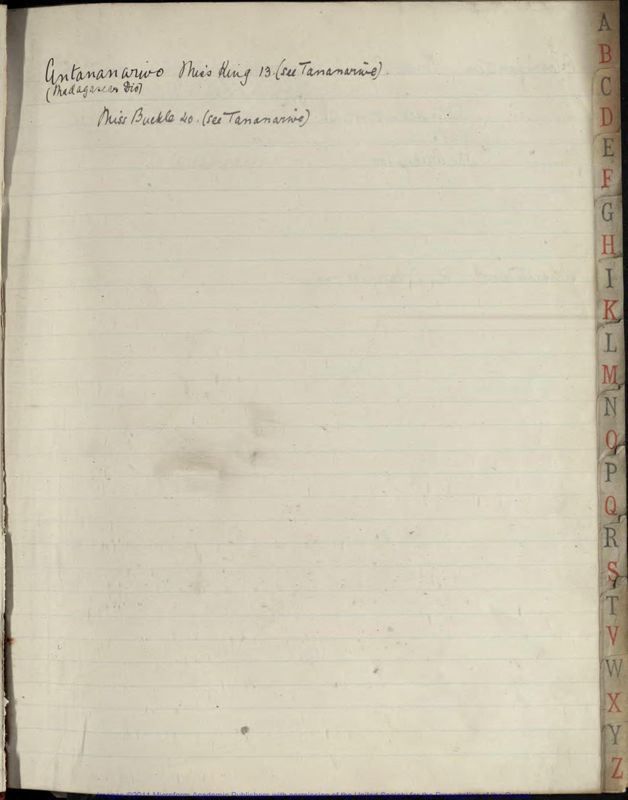 Antananarivo Miss King 13. (see Tananarive).
(Madagascar Dio)
Miss Buckle 20. (see Tananarive)
A
B
C
D
E
F
G
H
I
K
L
M
N
O
P
Q
R
S
T
V
W
X
Y
Z
Images ©2011 Microform Academic Publishers with permission of the United Society for the Propagation of the Gospel